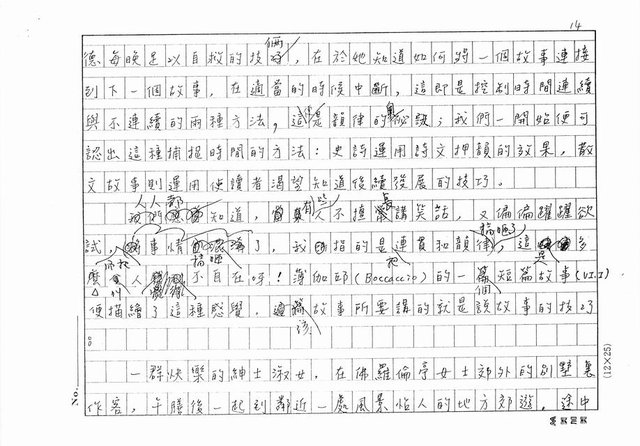 14
德每晚足以自救的技倆,在於她知道如何將一個故事連接
到下一個故事,在適當的時候中斷,這即是控制時間連續
與不連續的兩種方法,這也是韻律的奧秘訣;我們一開始便可
認出這種捕捉時間的方法:史詩運用詩文押韻的效果,散
文故事則運用使讀者渴望知道後續發展的技巧。
人人都知道,有些人不擅長講笑話,又偏偏躍躍欲
試,把事情搞砸了,我指的是連貫和韻律,這是多
麼令人不自在呀!薄伽邱(Boccaccio)的一個短篇故事(VI.I)
便描繪了這種感覺,該故事所要講的就是說故事的技巧
。
一群快樂的紳士淑女,在佛羅倫斯女士郊外的別墅裏
作客,午膳後一起到鄰近一處風景怡人的地方郊遊,途中
No.
(12×25)